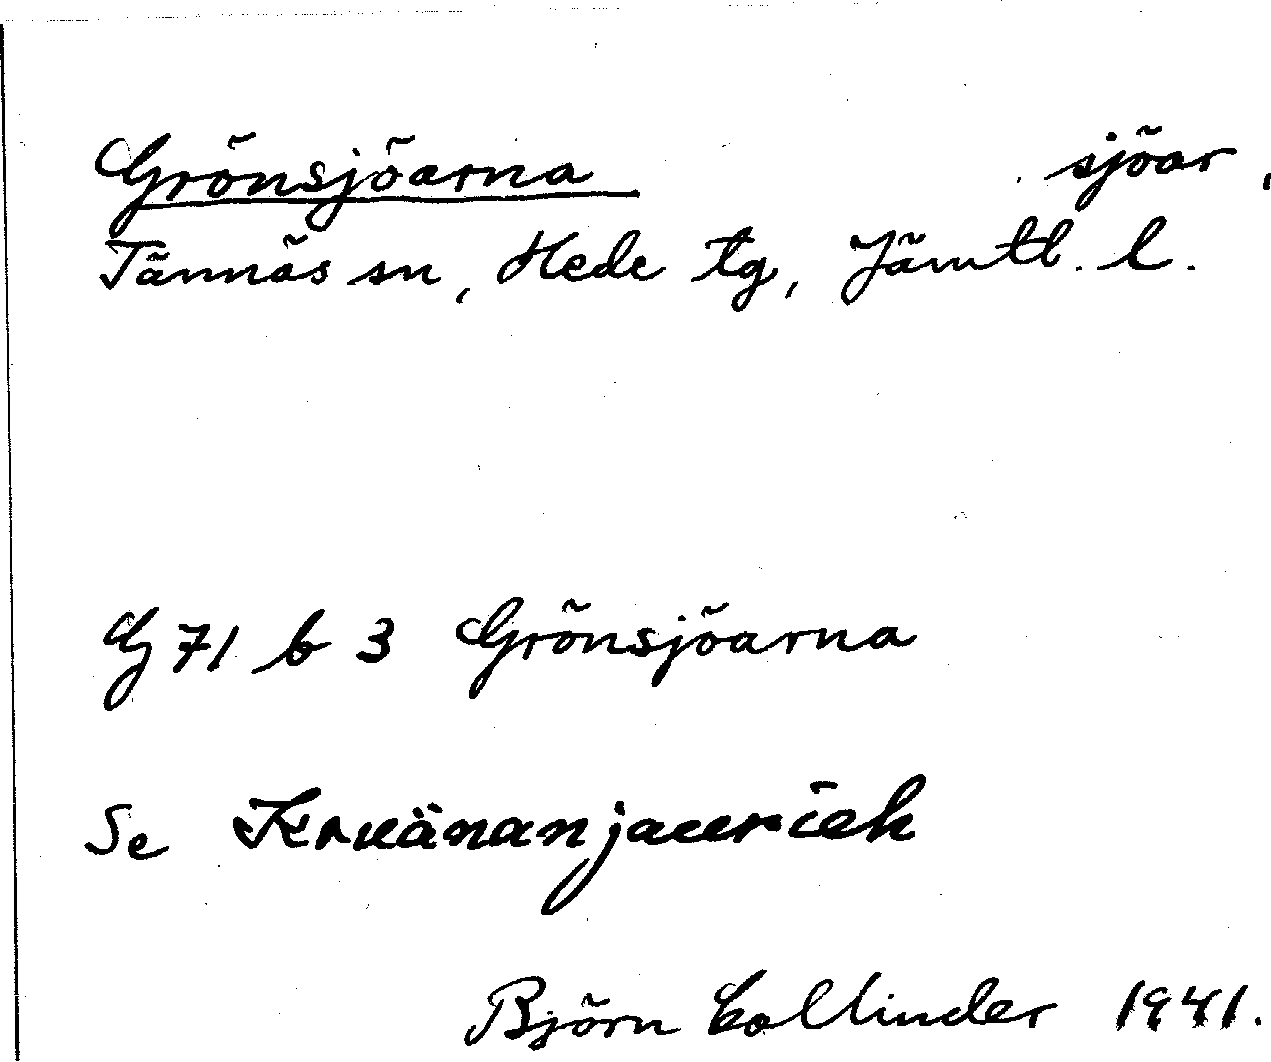 Grönsjöarna sjöar,
Tännäs sn, Hede tg, Jämtl. l.
G 71 b 3 Grönsjöarna
Se Kruänanjaurieh
Björn Collinder 1941.